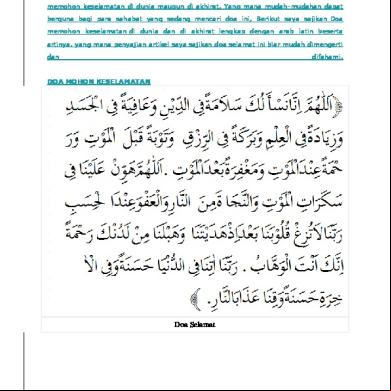 memohon keselamatan di dunia maupun di akhirat. Yang mana mudah-mudahan dapat
berguna bagi para sahabat yang sedang mencari doa ini. Berikut saya sajikan Doa
memohon keselamatan di dunia dan di akhirat lengkap dengan arab latin beserta
artinya, yang mana penyajian artikel saya sajikan doa selamat ini biar mudah dimengerti
dan difahami.
DOA MOHON KESELAMATAN
اَللّٰهُمَّ اِنَّانَسْأَلُكَ سَلَامَةً فِى الدِّيْنِ وَعَافِيَةً فِى الْجَسَدِ
وَزِيَادَةً فِى الْعِلْمِ وَبَرَكَةً فِى الرِّزْقِ وَتَوْبَةً قَبْلَ الْمَوْتِ وَرَ
حْمَةً عِنْدَالْمَوْتِ وَمَغْفِرَةً بَعْدَالْمَوْتِ . اَللّٰهُمَّ هَوِّنْ عَلَيْنَا فِى
سَكَرَاتِ الْمَوْتِ وَالنَّجَاةَ مِنَ النَّارِوَالْعَفْوَعِنْدَا لْحِسَبِ
رَبَّنَالَاتُزِغْ قُلُوْبَنَا بَعْدَاِذْهَدَيْتَنَا وَهَبْلَنَا مِنْ لَدُنْكَ رَحْمَةً
اِنَّكَ اَنْتَ الْوَهَّابُ . رَبَّنَا اٰتِنَا فِى الدُّنْيَا حَسَنَةً وَفِى الْاٰ
خِرَةِ حَسَنَةً وَقِنَا عَذَابَالنَّارِ.
Doa Selamat